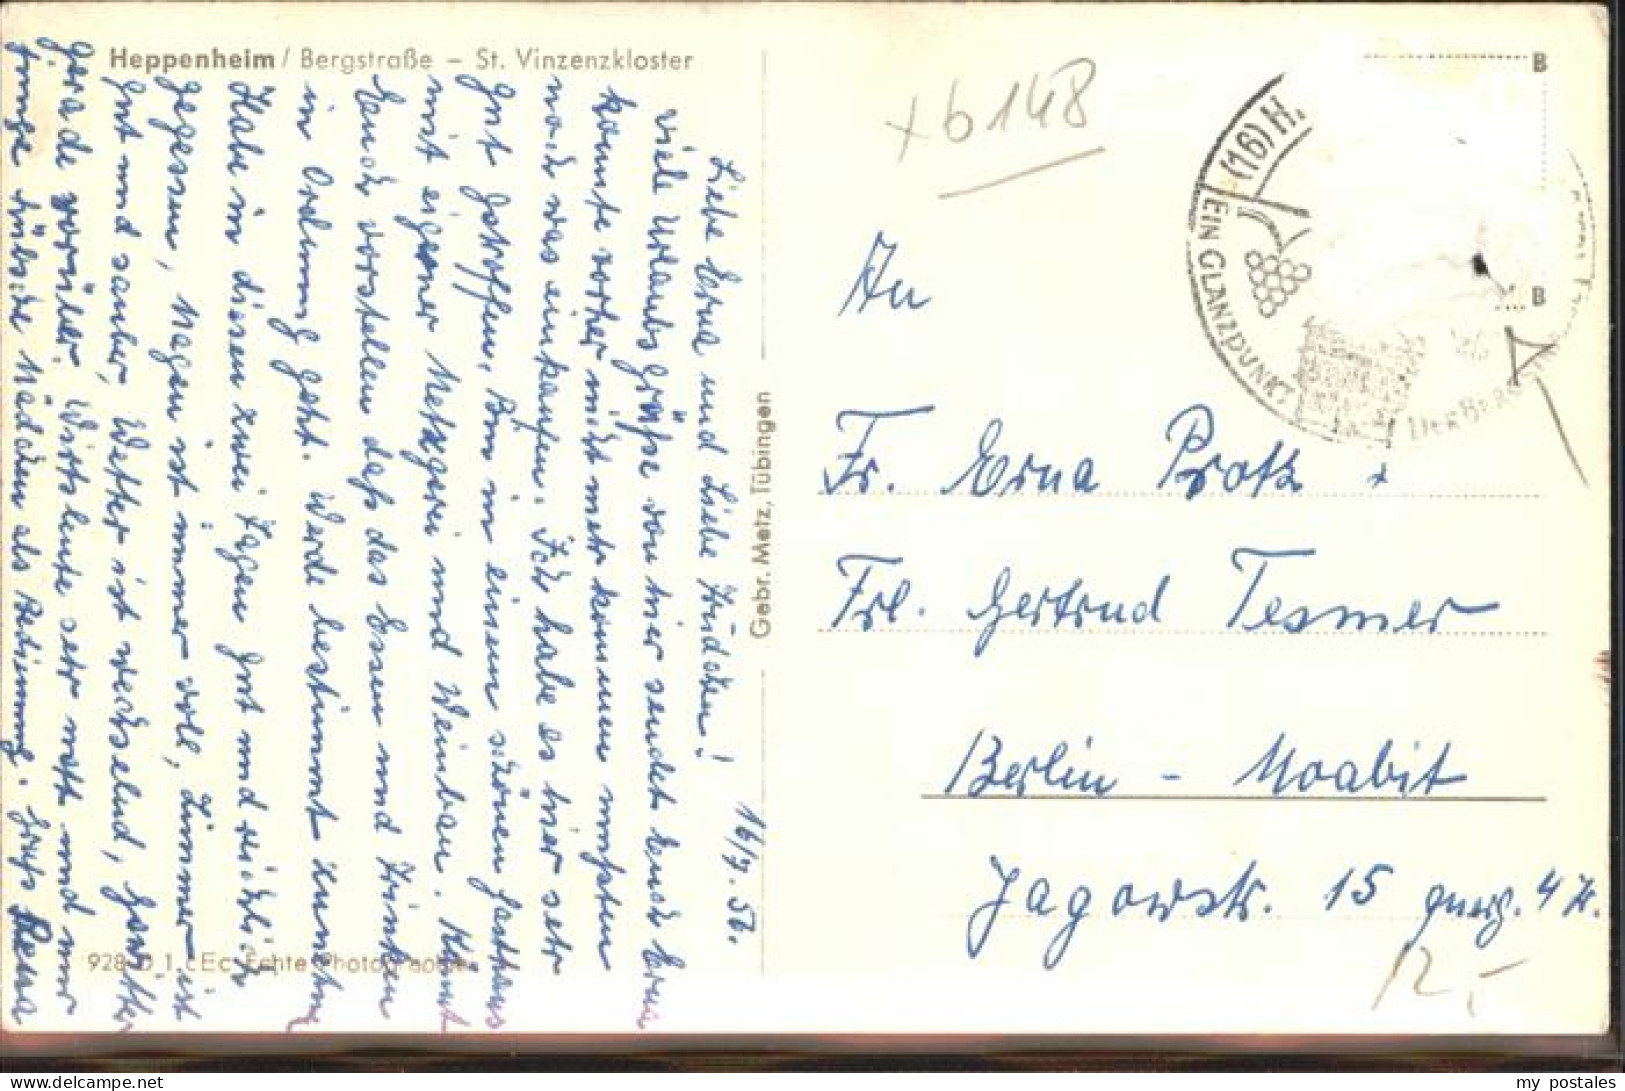 Heppenheim / Bergstraße – St. Vinzenzkloster
16/7. 56.
Liebe Erna und Liebe Trudchen!
Viele Urlaubsgrüße von hier sendet Euch Erna
konnte vorher nicht mehr kommen mußten
noch was einkaufen. Ich habe es hier sehr
gut getroffen, Bin in einem schönen Gasthaus
mit eigener Metzgerei und Weinbau. Könnt
Euch vorstellen daß das Essen und Trinken
in Ordnung geht. Werde bestimmt zunehm
Habe in diesen zwei Tagen gut und reichlich
gegessen, Magen ist immer voll, Zimmer ist
gut und sauber, Wetter ist wechselnd, Gewitter
gerade vorüber. Wirtsleute sehr nett und nur
junge hübsche Mädchen als Bedienung. Gruß Erna
Gebr. Metz, Tübingen
928 D 1 c Ec Echte Photographie
x b 148
(16) H.
EIN GLANZPUNKT
DER BERGSTR
B
B
An
Fr. Erna Protz +
Frl. Gertrud Tesmer
Berlin - Moabit
Jagowstr. 15 querg. 4 Tr.
12,-
my postales